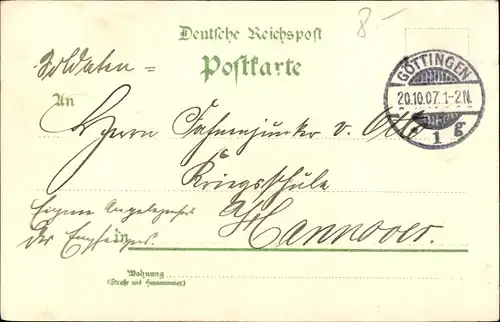 8.-
Deutsche Reichspost
Soldaten =
Postkarte
GÖTTINGEN
20.10.07. 1-2N.
* 1 g
An
Herrn Fahnenjunker v. Otto
Kriegsschule
Eigene Angelegenheit
des Empfängers.
in Hannover.
Wohnung
(Straße und Hausnummer)